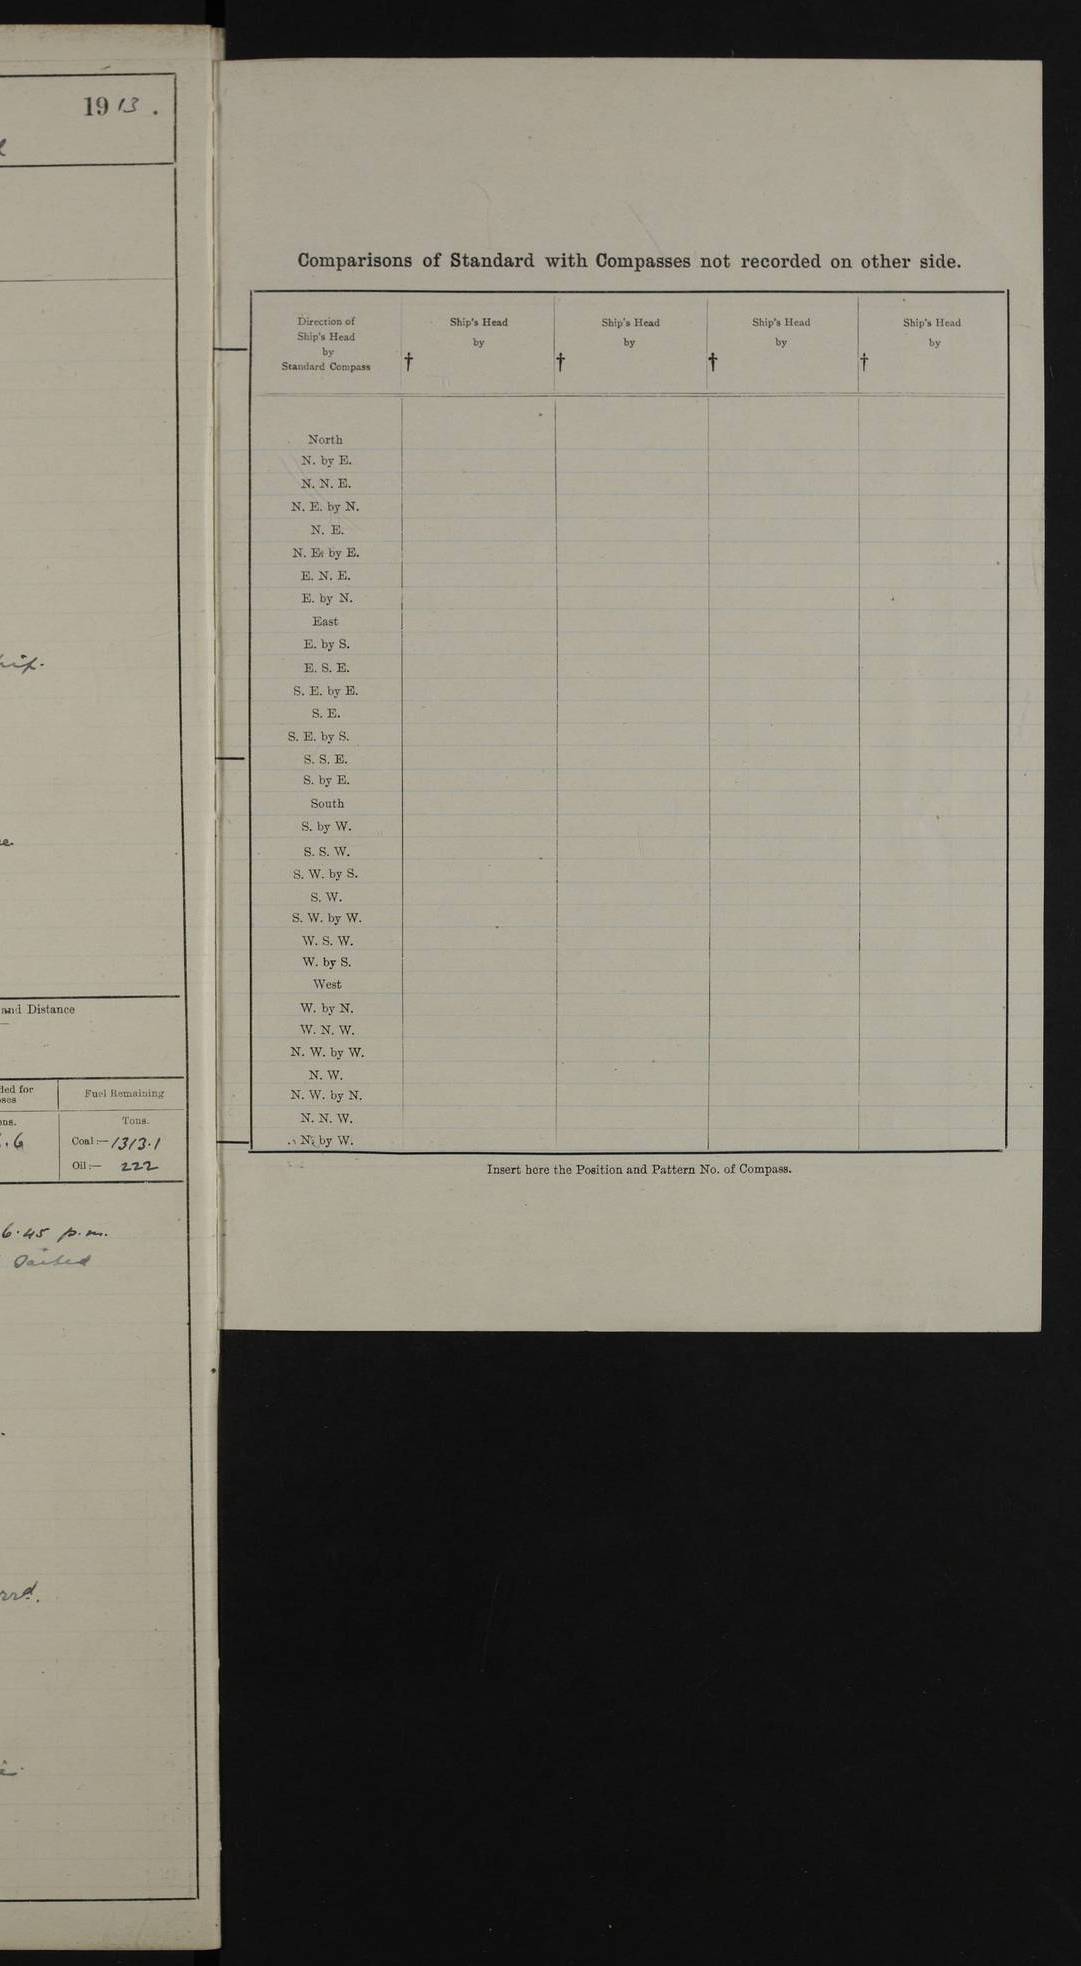 1913.
and Distance
Fuel Remaining
Tons.
Coal:— 1313.1
Oil:— 222
6.45 p.m.
Comparisons of Standard with Compasses not recorded on other side.
Direction of
Ship's Head
by
Standard Compass
Ship's Head
by
†
Ship's Head
by
†
Ship's Head
by
†
Ship's Head
by
†
North
N. by E.
N. N. E.
N. E. by N.
N. E.
N. E. by E.
E. N. E.
E. by N.
East
E. by S.
E. S. E.
S. E. by E.
S. E.
S. E. by S.
S. S. E.
S. by E.
South
S. by W.
S. S. W.
S. W. by S.
S. W.
S. W. by W.
W. S. W.
W. by S.
West
W. by N.
W. N. W.
N. W. by W.
N. W.
N. W. by N.
N. N. W.
N. by W.
Insert here the Position and Pattern No. of Compass.